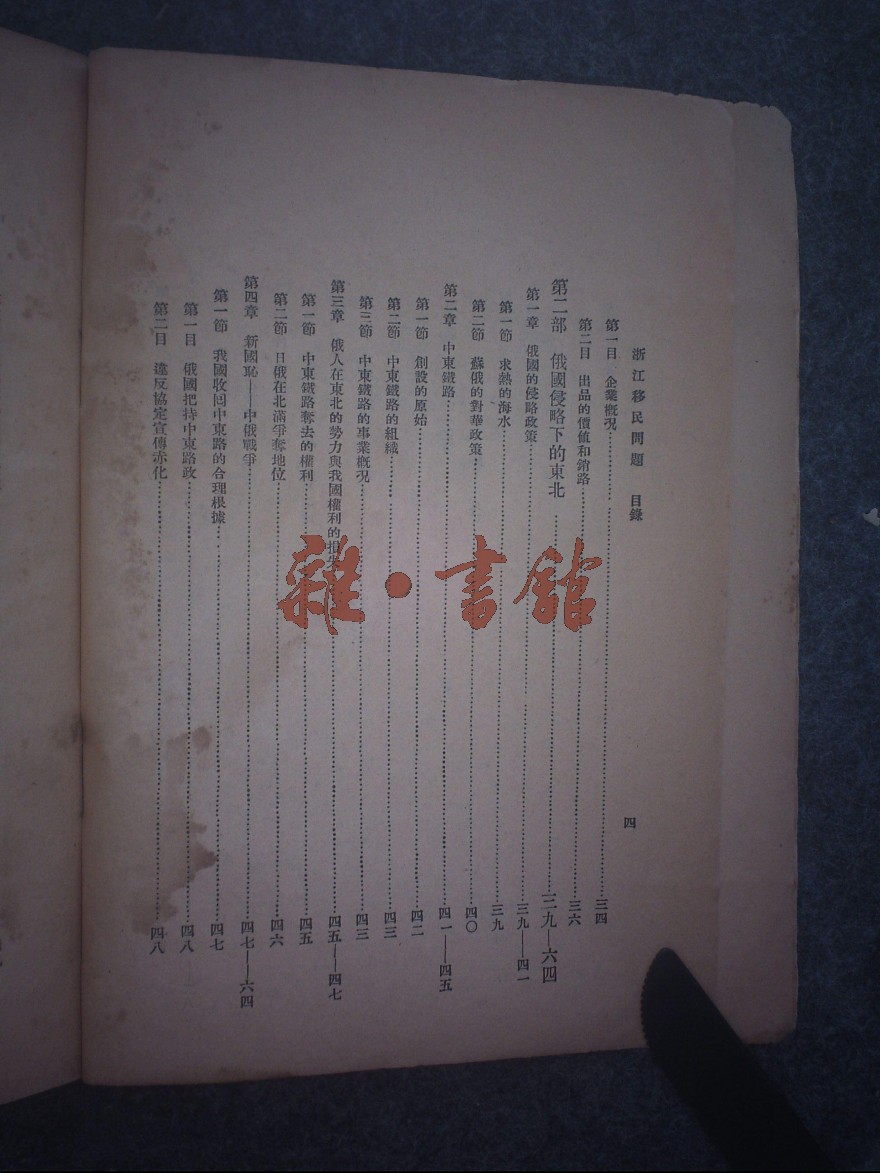 浙江移民問題　目錄　四
第一目　企業概況……三四
第二目　出品的價値和銷路……三六
第二部　俄國侵略下的東北……三九—六四
第一章　俄國的侵略政策……三九—四一
第一節　求熱的海水……三九
第二節　蘇俄的對華政策……四〇
第二章　中東鐵路……四一—四五
第一節　創設的原始……四二
第二節　中東鐵路的組織……四三
第三節　中東鐵路的事業概況……四三
第三章　俄人在東北的勢力與我國權利的損失……四五—四七
第一節　中東鐵路奪去的權利……四五
第二節　日俄在北滿爭奪地位……四六
第四章　新國恥——中俄戰爭……四七—六四
第一節　我國收回中東路的合理根據……四七
第一目　俄國把持中東路政……四八
第二目　違反協定宣傳赤化……四八
雜·書館